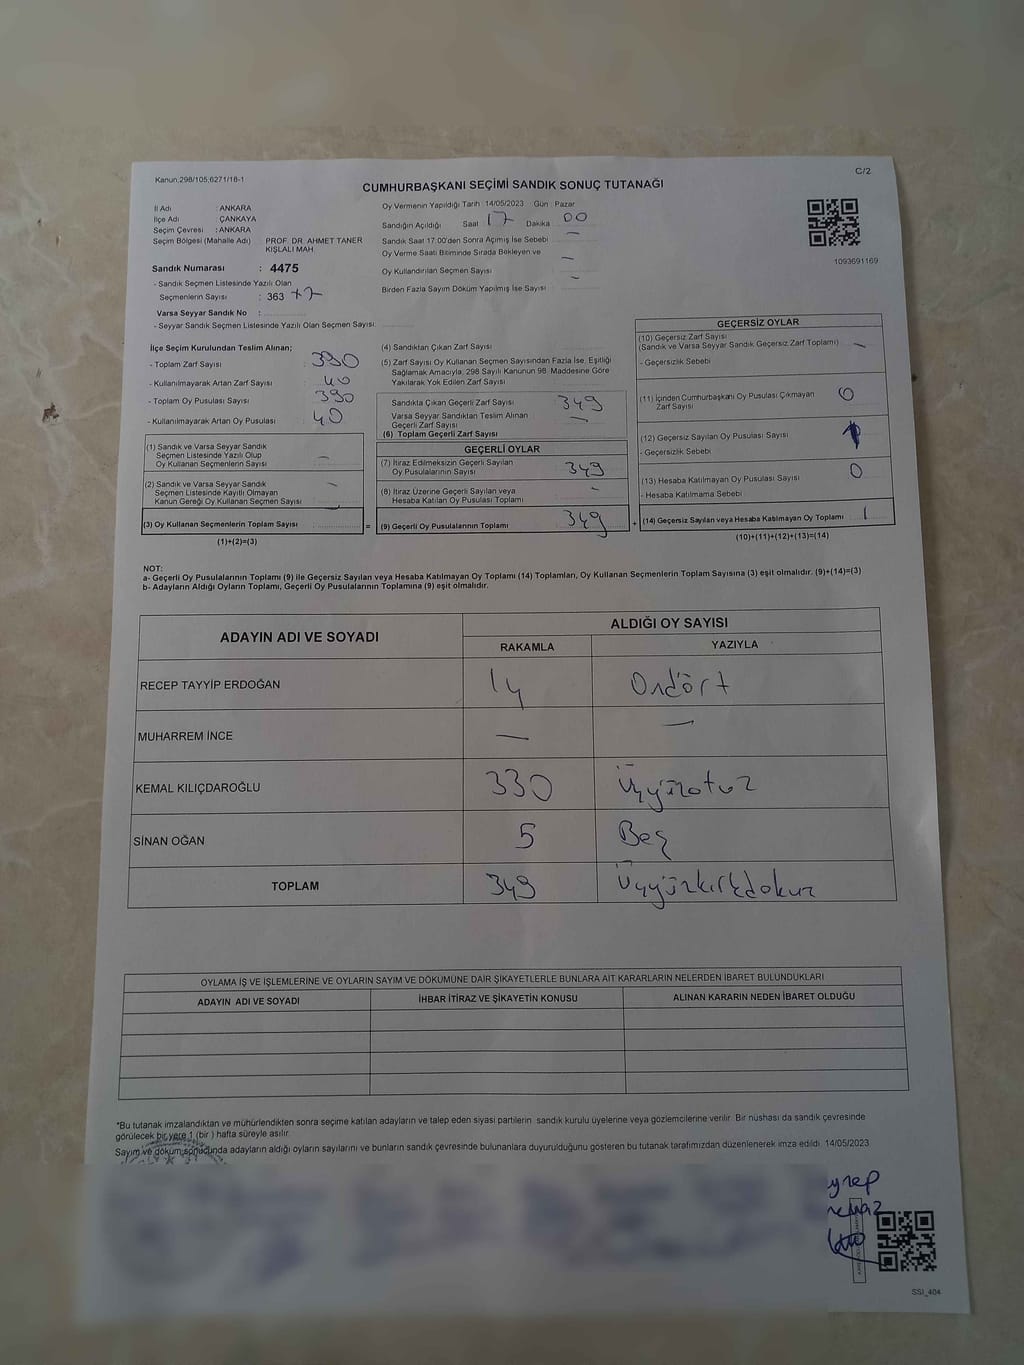 Kanun;298/105;6271/18-1
C/2
CUMHURBAŞKANI SEÇİMİ SANDIK SONUÇ TUTANAĞI
İl Adı : ANKARA
İlçe Adı : ÇANKAYA
Seçim Çevresi : ANKARA
Seçim Bölgesi (Mahalle Adı) PROF. DR. AHMET TANER KIŞLALI MAH
Sandık Numarası : 4475
- Sandık Seçmen Listesinde Yazılı Olan
Seçmenlerin Sayısı : 363 +7
Varsa Seyyar Sandık No :
- Seyyar Sandık Seçmen Listesinde Yazılı Olan Seçmen Sayısı:
Oy Vermenin Yapıldığı Tarih 14/05/2023 Gün : Pazar
Sandığın Açıldığı Saat 17 Dakika 00
Sandık Saat 17.00'den Sonra Açımış İse Sebebi —
Oy Verme Saati Bitiminde Sırada Bekleyen ve
Oy Kullandırılan Seçmen Sayısı —
Birden Fazla Sayım Döküm Yapılmış İse Sayısı —
1093691169
İlçe Seçim Kurulundan Teslim Alınan;
- Toplam Zarf Sayısı : 390
- Kullanılmayarak Artan Zarf Sayısı : 40
- Toplam Oy Pusulası Sayısı : 390
- Kullanılmayarak Artan Oy Pusulası : 40
(1) Sandık ve Varsa Seyyar Sandık
Seçmen Listesinde Yazılı Olup
Oy Kullanan Seçmenlerin Sayısı —
(2) Sandık ve Varsa Seyyar Sandık
Seçmen Listesinde Kayıtlı Olmayan
Kanun Gereği Oy Kullanan Seçmen Sayısı —
(3) Oy Kullanan Seçmenlerin Toplam Sayısı =
(1)+(2)=(3)
(4) Sandıktan Çıkan Zarf Sayısı
(5) Zarf Sayısı Oy Kullanan Seçmen Sayısından Fazla İse, Eşitliği
Sağlamak Amacıyla, 298 Sayılı Kanunun 98. Maddesine Göre
Yakılarak Yok Edilen Zarf Sayısı
Sandıkta Çıkan Geçerli Zarf Sayısı : 349
Varsa Seyyar Sandıktan Teslim Alınan
Geçerli Zarf Sayısı —
(6) Toplam Geçerli Zarf Sayısı
GEÇERLİ OYLAR
(7) İtiraz Edilmeksizin Geçerli Sayılan
Oy Pusulalarının Sayısı 349
(8) İtiraz Üzerine Geçerli Sayılan veya
Hesaba Katılan Oy Pusulası Toplamı —
(9) Geçerli Oy Pusulalarının Toplamı 349 +
GEÇERSİZ OYLAR
(10) Geçersiz Zarf Sayısı
(Sandık ve Varsa Seyyar Sandık Geçersiz Zarf Toplamı) —
- Geçersizlik Sebebi
(11) İçinden Cumhurbaşkanı Oy Pusulası Çıkmayan
Zarf Sayısı 0
(12) Geçersiz Sayılan Oy Pusulası Sayısı 1
- Geçersizlik Sebebi
(13) Hesaba Katılmayan Oy Pusulası Sayısı 0
- Hesaba Katılmama Sebebi
(14) Geçersiz Sayılan veya Hesaba Katılmayan Oy Toplamı 1
(10)+(11)+(12)+(13)=(14)
NOT:
a- Geçerli Oy Pusulalarının Toplamı (9) ile Geçersiz Sayılan veya Hesaba Katılmayan Oy Toplamı (14) Toplamları, Oy Kullanan Seçmenlerin Toplam Sayısına (3) eşit olmalıdır. (9)+(14)=(3)
b- Adayların Aldığı Oyların Toplamı, Geçerli Oy Pusulalarının Toplamına (9) eşit olmalıdır.
ADAYIN ADI VE SOYADI
ALDIĞI OY SAYISI
RAKAMLA YAZIYLA
RECEP TAYYİP ERDOĞAN 14 Ondört
MUHARREM İNCE — —
KEMAL KILIÇDAROĞLU 330 Üçyüzotuz
SİNAN OĞAN 5 Beş
TOPLAM 349 Üçyüzkırkdokuz
OYLAMA İŞ VE İŞLEMLERİNE VE OYLARIN SAYIM VE DÖKÜMÜNE DAİR ŞİKAYETLERLE BUNLARA AİT KARARLARIN NELERDEN İBARET BULUNDUKLARI
ADAYIN ADI VE SOYADI İHBAR İTİRAZ VE ŞİKAYETİN KONUSU ALINAN KARARIN NEDEN İBARET OLDUĞU
*Bu tutanak imzalandıktan ve mühürlendikten sonra seçime katılan adayların ve talep eden siyasi partilerin sandık kurulu üyelerine veya gözlemcilerine verilir. Bir nüshası da sandık çevresinde
görülecek bir yere 1 (bir ) hafta süreyle asılır.
Sayım ve döküm sonucunda adayların aldığı oyların sayılarını ve bunların sandık çevresinde bulunanlara duyurulduğunu gösteren bu tutanak tarafımızdan düzenlenerek imza edildi. 14/05/2023
SSI_404